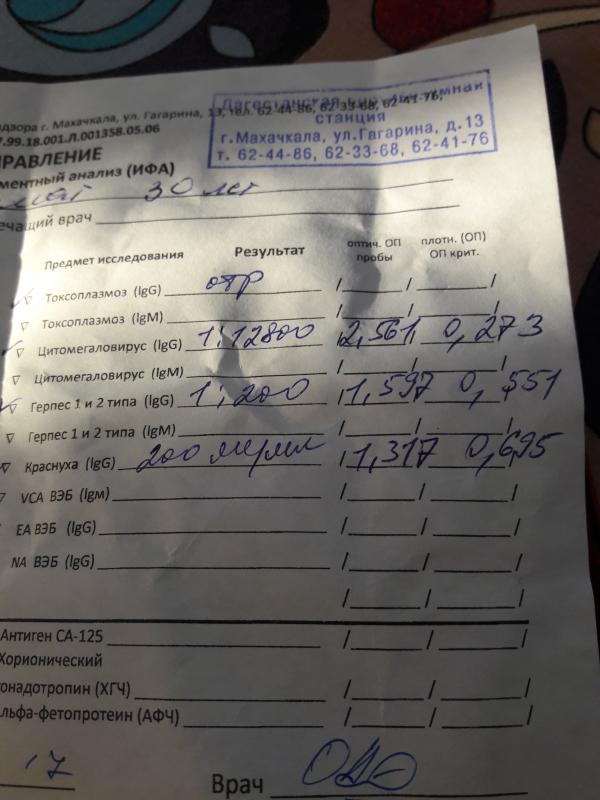 Дагестанская
станция
г.Махачкала, ул.Гагарина, д.13
т. 62-44-86, 62-33-68, 62-41-76
дзора г. Махачкала, ул. Гагарина, 13, тел. 62-44-86, 62-33-68, 62-41-76,
7.99.18.001.Л.001358.05.06
ПРАВЛЕНИЕ
ментный анализ (ИФА)
30 лет
ечащий врач
Предмет исследования Результат оптич. ОП пробы плотн. (ОП) ОП крит.
Токсоплазмоз (IgG) отр / / /
Токсоплазмоз (IgM) / / /
Цитомегаловирус (IgG) 1:12800 2,561 0,273
Цитомегаловирус (IgM) / / /
Герпес 1 и 2 типа (IgG) 1:200 1,597 0,551
Герпес 1 и 2 типа (IgM) / / /
Краснуха (IgG) 200 1,317 0,695
VCA ВЭБ (Igм) / / /
EA ВЭБ (IgG) / / /
NA ВЭБ (IgG) / / /
/ / /
Антиген СА-125 / / /
Хорионический
онадотропин (ХГЧ) / / /
льфа-фетопротеин (АФЧ) / / /
17 Врач